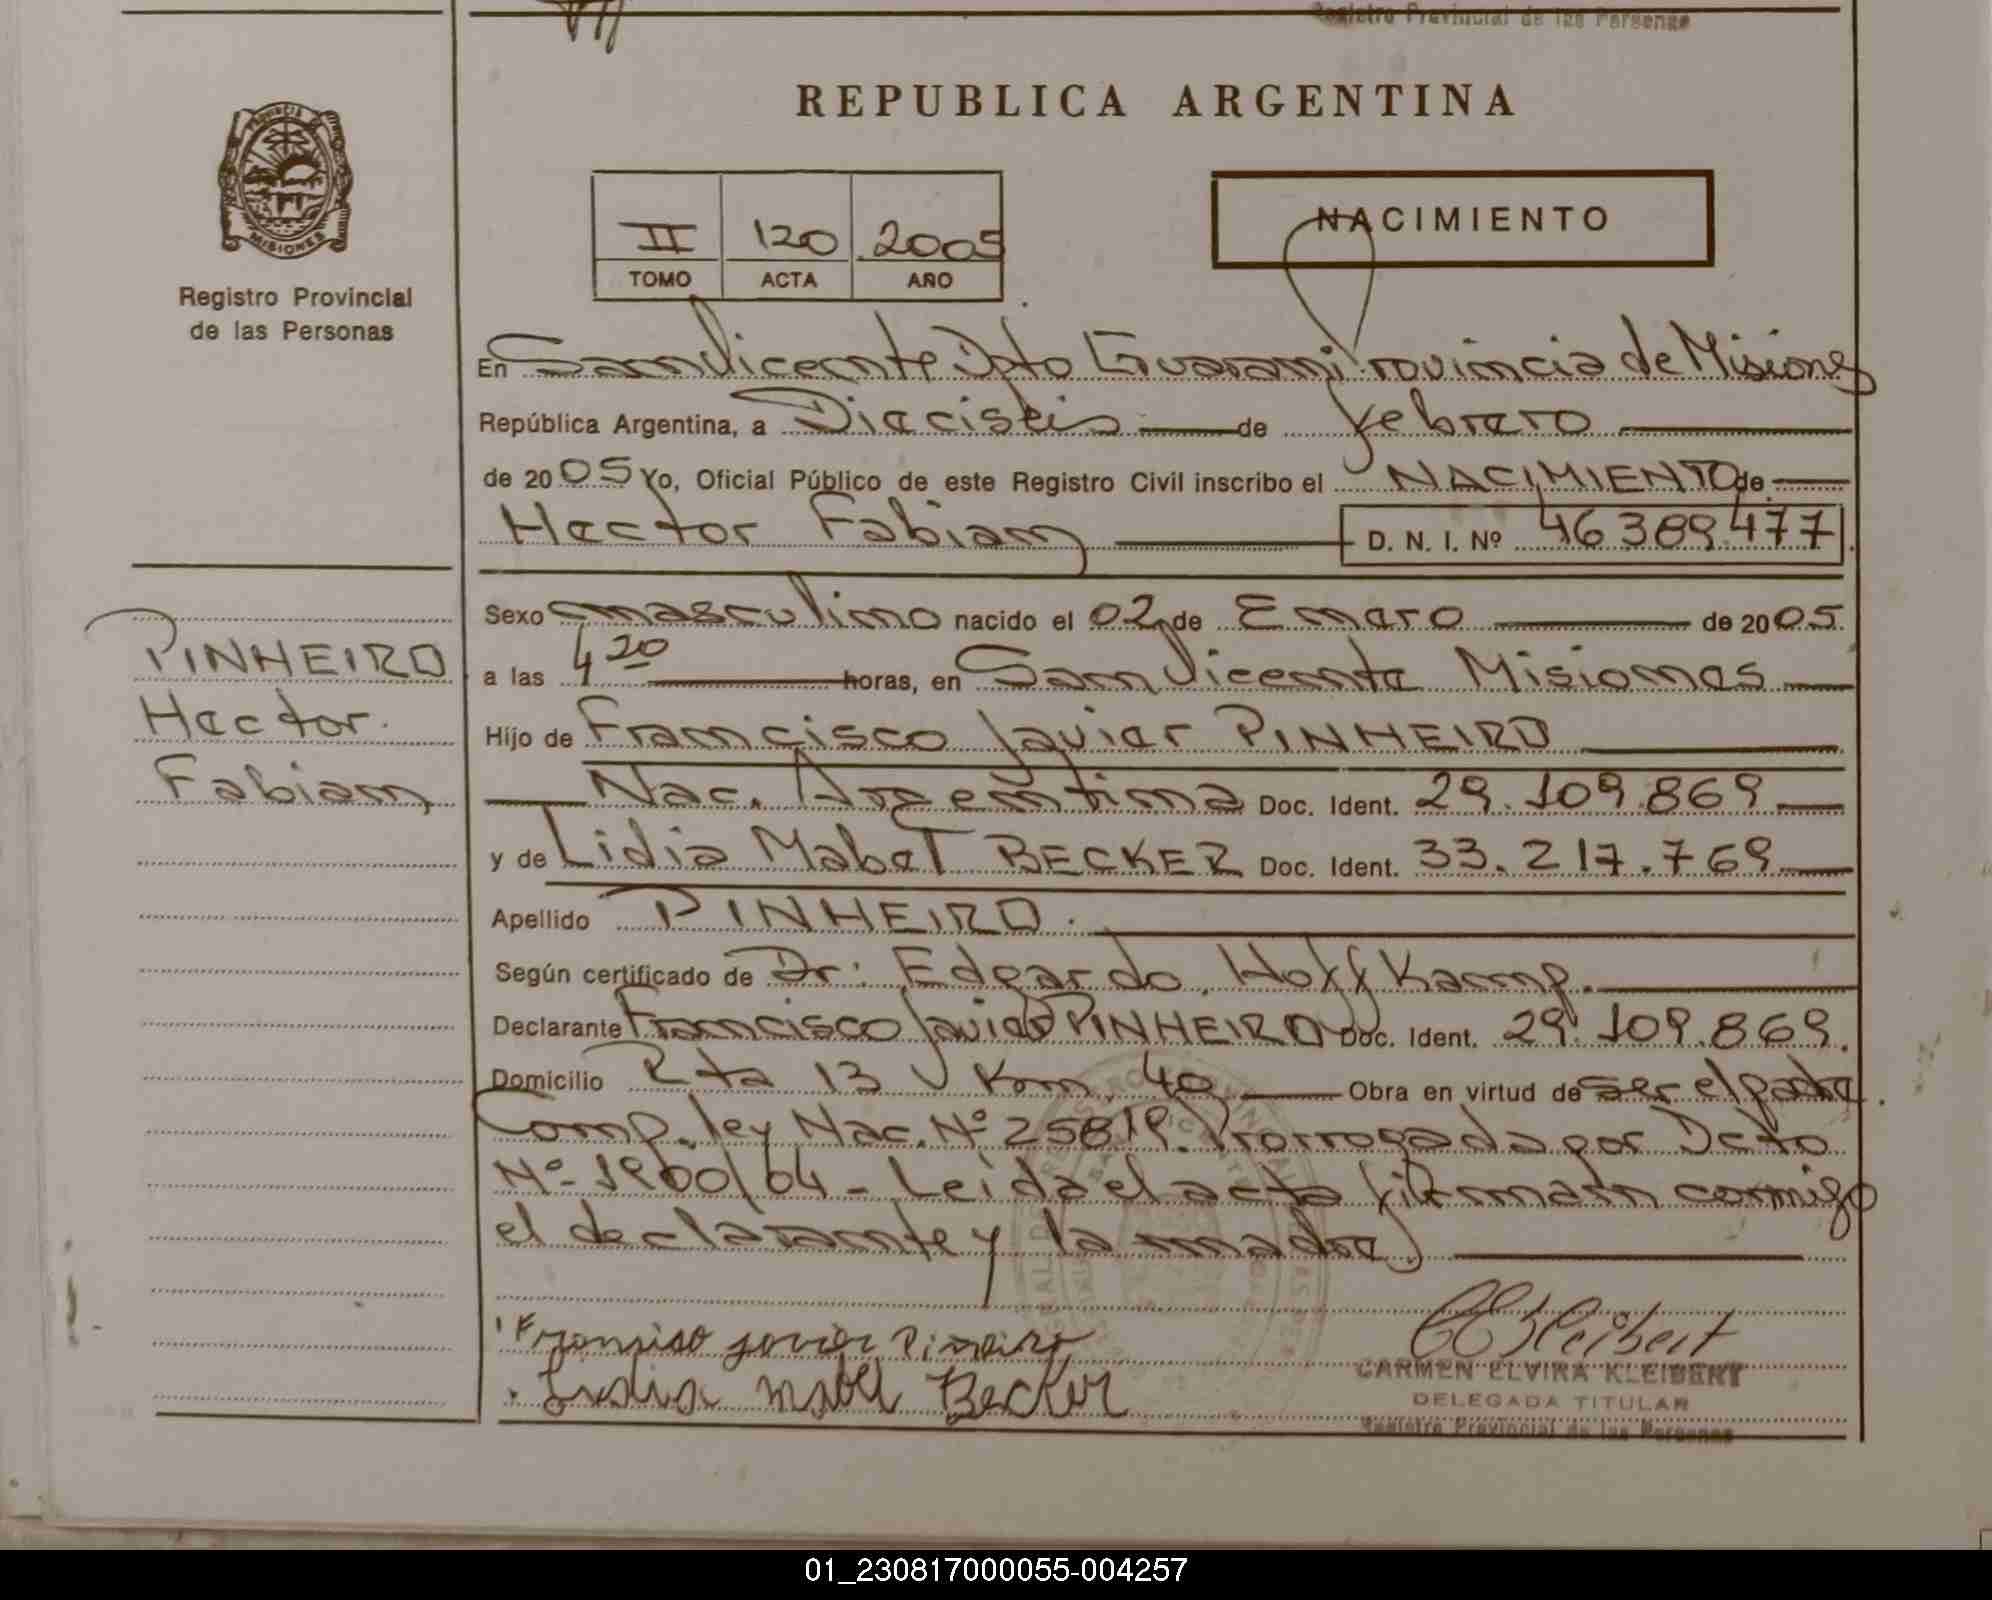 Registro Provincial de las Personas
REPUBLICA ARGENTINA
PROVINCIA
MISIONES
Registro Provincial
de las Personas
II 120 2005
TOMO ACTA AÑO
NACIMIENTO
En San Vicente Dpto Guarani Provincia de Misiones
República Argentina, a Dieciseis de febrero
de 2005 Yo, Oficial Público de este Registro Civil inscribo el NACIMIENTO de
Hector Fabian D. N. I. Nº 46389.477
Sexo masculino nacido el 02 de Enero de 2005
a las 4 20 horas, en San Vicente Misiones
Hijo de Francisco Javier PINHEIRO
Nac. Argentina Doc. Ident. 29.109.869
y de Lidia Mabel BECKER Doc. Ident. 33.217.769
Apellido PINHEIRO.
Según certificado de Dr: Edgardo Hoff Kamp.
Declarante Francisco Javier PINHEIRO Doc. Ident. 29.109.869.
Domicilio Rta 13 Km 40 Obra en virtud de ser el padre
Comp. ley Nac. Nº 25819. Prorrogada por Dcto
Nº 1900/04 - Leida el acta firman conmigo
el declarante y la madre
PINHEIRO
Hector
Fabian
Francisco Javier Pineiro
Lidia Mabel Becker
CEKleibert
CARMEN ELVIRA KLEIBERT
DELEGADA TITULAR
Registro Provincial de las Personas
01_230817000055-004257